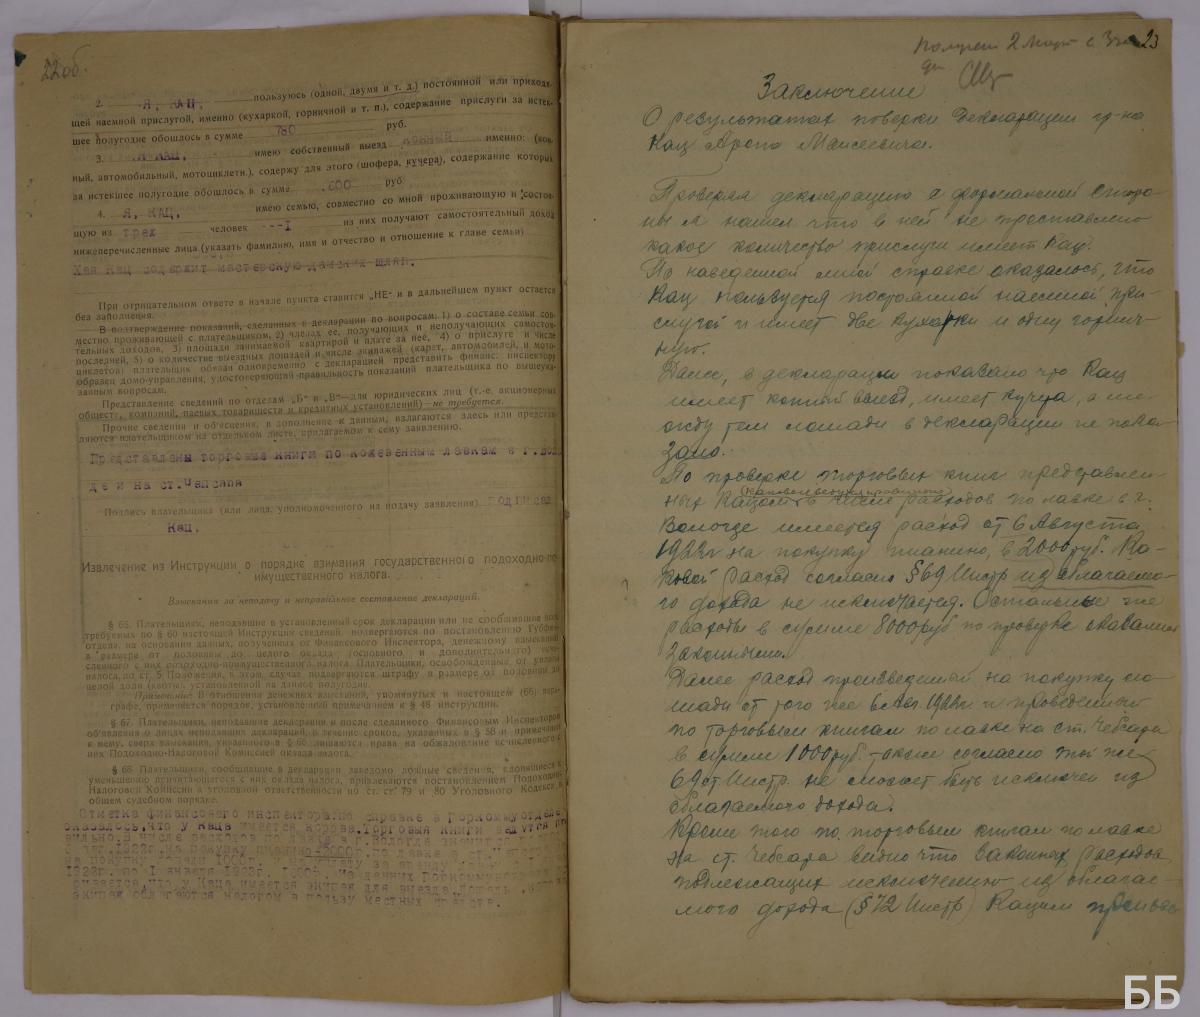 22об.
2. Я, КАЦ, пользуюсь (одной, двумя и т. д.) постоянной или приходя-
щей наемной прислугой, именно (кухаркой, горничной и т. п.), содержание прислуги за истек-
шее полугодие обошлось в сумме 780 руб.
3. Я КАЦ, имею собственный выезд конный именно: (кон-
ный, автомобильный, мотоциклетн.), содержу для этого (шофера, кучера), содержание которых
за истекшее полугодие обошлось в сумме .600 руб
4. Я, КАЦ, имею семью, совместно со мной проживающую и состоя-
щую из трех человек ---I из них получают самостоятельный доход
нижеперечисленные лица (указать фамилию, имя и отчество и отношение к главе семьи)
Хая Кац содержит мастерскую дамских шляп.
При отрицательном ответе в начале пункта ставится „НЕ“ и в дальнейшем пункт остается
без заполнения.
В подтверждение показаний, сделанных в декларации по вопросам: 1) о составе семьи сов-
местно проживающей с плательщиком, 2) членах ее, получающих и неполучающих самостоя-
тельных доходов, 3) площади занимаемой квартирой и плате за неё, 4) о прислуге и числе
последней, 5) о количестве выездных лошадей и числе экипажей (карет, автомобилей, и мото-
циклетов) плательщик обязан одновременно с декларацией представить финанс. инспектору
образец домо-управления, удостоверяющий правильность показаний плательщика по вышеука-
занным вопросам.
Представление сведений по отделам „Б“ и „В“—для юридических лиц (т.-е. акционерных
обществ, компаний, паевых товариществ и кредитных установлений)—не требуется.
Прочие сведения и об'яснения, в дополнение к данным, излагаются здесь или представ-
ляются плательщиком на отдельном листе, прилагаемом к сему заявлению.
Представлены торговые книги по кожевенным лавкам в г.Волог
де и на ст.Чебсара
Подпись плательщика (или лица, уполномоченного на подачу заявления) подписал
Кац.
Извлечение из Инструкции о порядке взимания государственного подоходно-по-
имущественного налога.
Взыскания за неподачу и неправильное составление деклараций.
§ 65. Плательщики, неподавшие в установленный срок декларации или не сообщившие всех
требуемых по § 60 настоящей Инструкции сведений, подвергаются по постановлению Губфин-
отдела, на основании данных, полученных от Финансового Инспектора, денежному взысканию
в размере от половины до целого оклада (основного и дополнительного) исчи-
сленного с них подоходно-поимущественного налога. Плательщики, освобожденные от уплаты
налога, по ст. 5 Положения, в этом случае подвергаются штрафу в размере от половины до
целой доли (квоты), установленной на данное полугодие.
Примечание: В отношении денежных взысканий, упомянутых в настоящем (66) пара-
графе, применяется порядок, установленный примечанием к § 46 инструкции.
§ 67. Плательщики, неподавшие декларации и после сделанного Финансовым Инспектором
об'явления о лицах неподавших деклараций, в течение сроков, указанных в § 58 и примечании
к нему, сверх взыскания, указанного в § 66 лишаются права на обжалование исчисленного с
них Подоходно-Налоговой Комиссией оклада налога.
§ 68 Плательщики, сообщившие в декларации заведомо ложные сведения, клонящиеся к
уменьшению причитающегося с них оклада налога, привлекаются постановлением Подоходно-
Налоговой Комиссии к уголовной ответственности по ст. ст. 79 и 80 Уголовного Кодекса, в
общем судебном порядке.
Отметка финансового инспектора.По справке в Горкоммунотделе
оказалось,что у Каца имеется корова.Торговыя книги ведутся пра
вильно,в числе расхода по лавке в г.Вологда значит
авг.1922г.на покупку пианино-2000г.по лавке в ст.Чебсара
на покупку лошади 1000г.
1922г. по 1 января 1923г. из данных Горкоммун
вается,что у Каца имеется экипаж для выезда.Лошадь
экипаж облагаются налогом в пользу местных средств.
23
2 Март
Заключение
О результатах поверки декларации гр-на
Кац Арона Маисеевича.
Проверяя декларацию с формальной сторо-
ны я нашел что в ней не проставлено
какое количество прислуги имеет Кац.
По наведенной мной справке оказалось, что
Кац пользуется постоянной наемной при-
слугой и имеет две кухарки и одну горнич-
ную.
Далее, в декларации показано что Кац
имеет конный выезд, имеет кучера, а ме-
жду тем лошади в декларации не пока-
зано.
По проверке торговых книг представлен-
ных Кацом в числе расходов по лавке в г.
Вологде имеется расход от 6 Августа
1922г на покупку пианино, в 2000 руб. Ка-
ковой расход согласно § 69 Инстр из облагаемо-
го дохода не исключается. Остальные же
расходы в сумме 8000 руб по проверке оказались
законными.
Далее расход произведенный на покупку ло-
шади от того же 6 Авг. 1922г и проведенный
по торговым книгам по лавке на ст. Чебсара
в сумме 1000 руб. также согласно той же
69 ст. Инстр. не может быть исключен из
облагаемого дохода.
Кроме того по торговым книгам по лавке
на ст. Чебсара видно что законных расходов
подлежащих исключению из облагае-
мого дохода (§ 72 Инстр) Кацим произве-
ББ